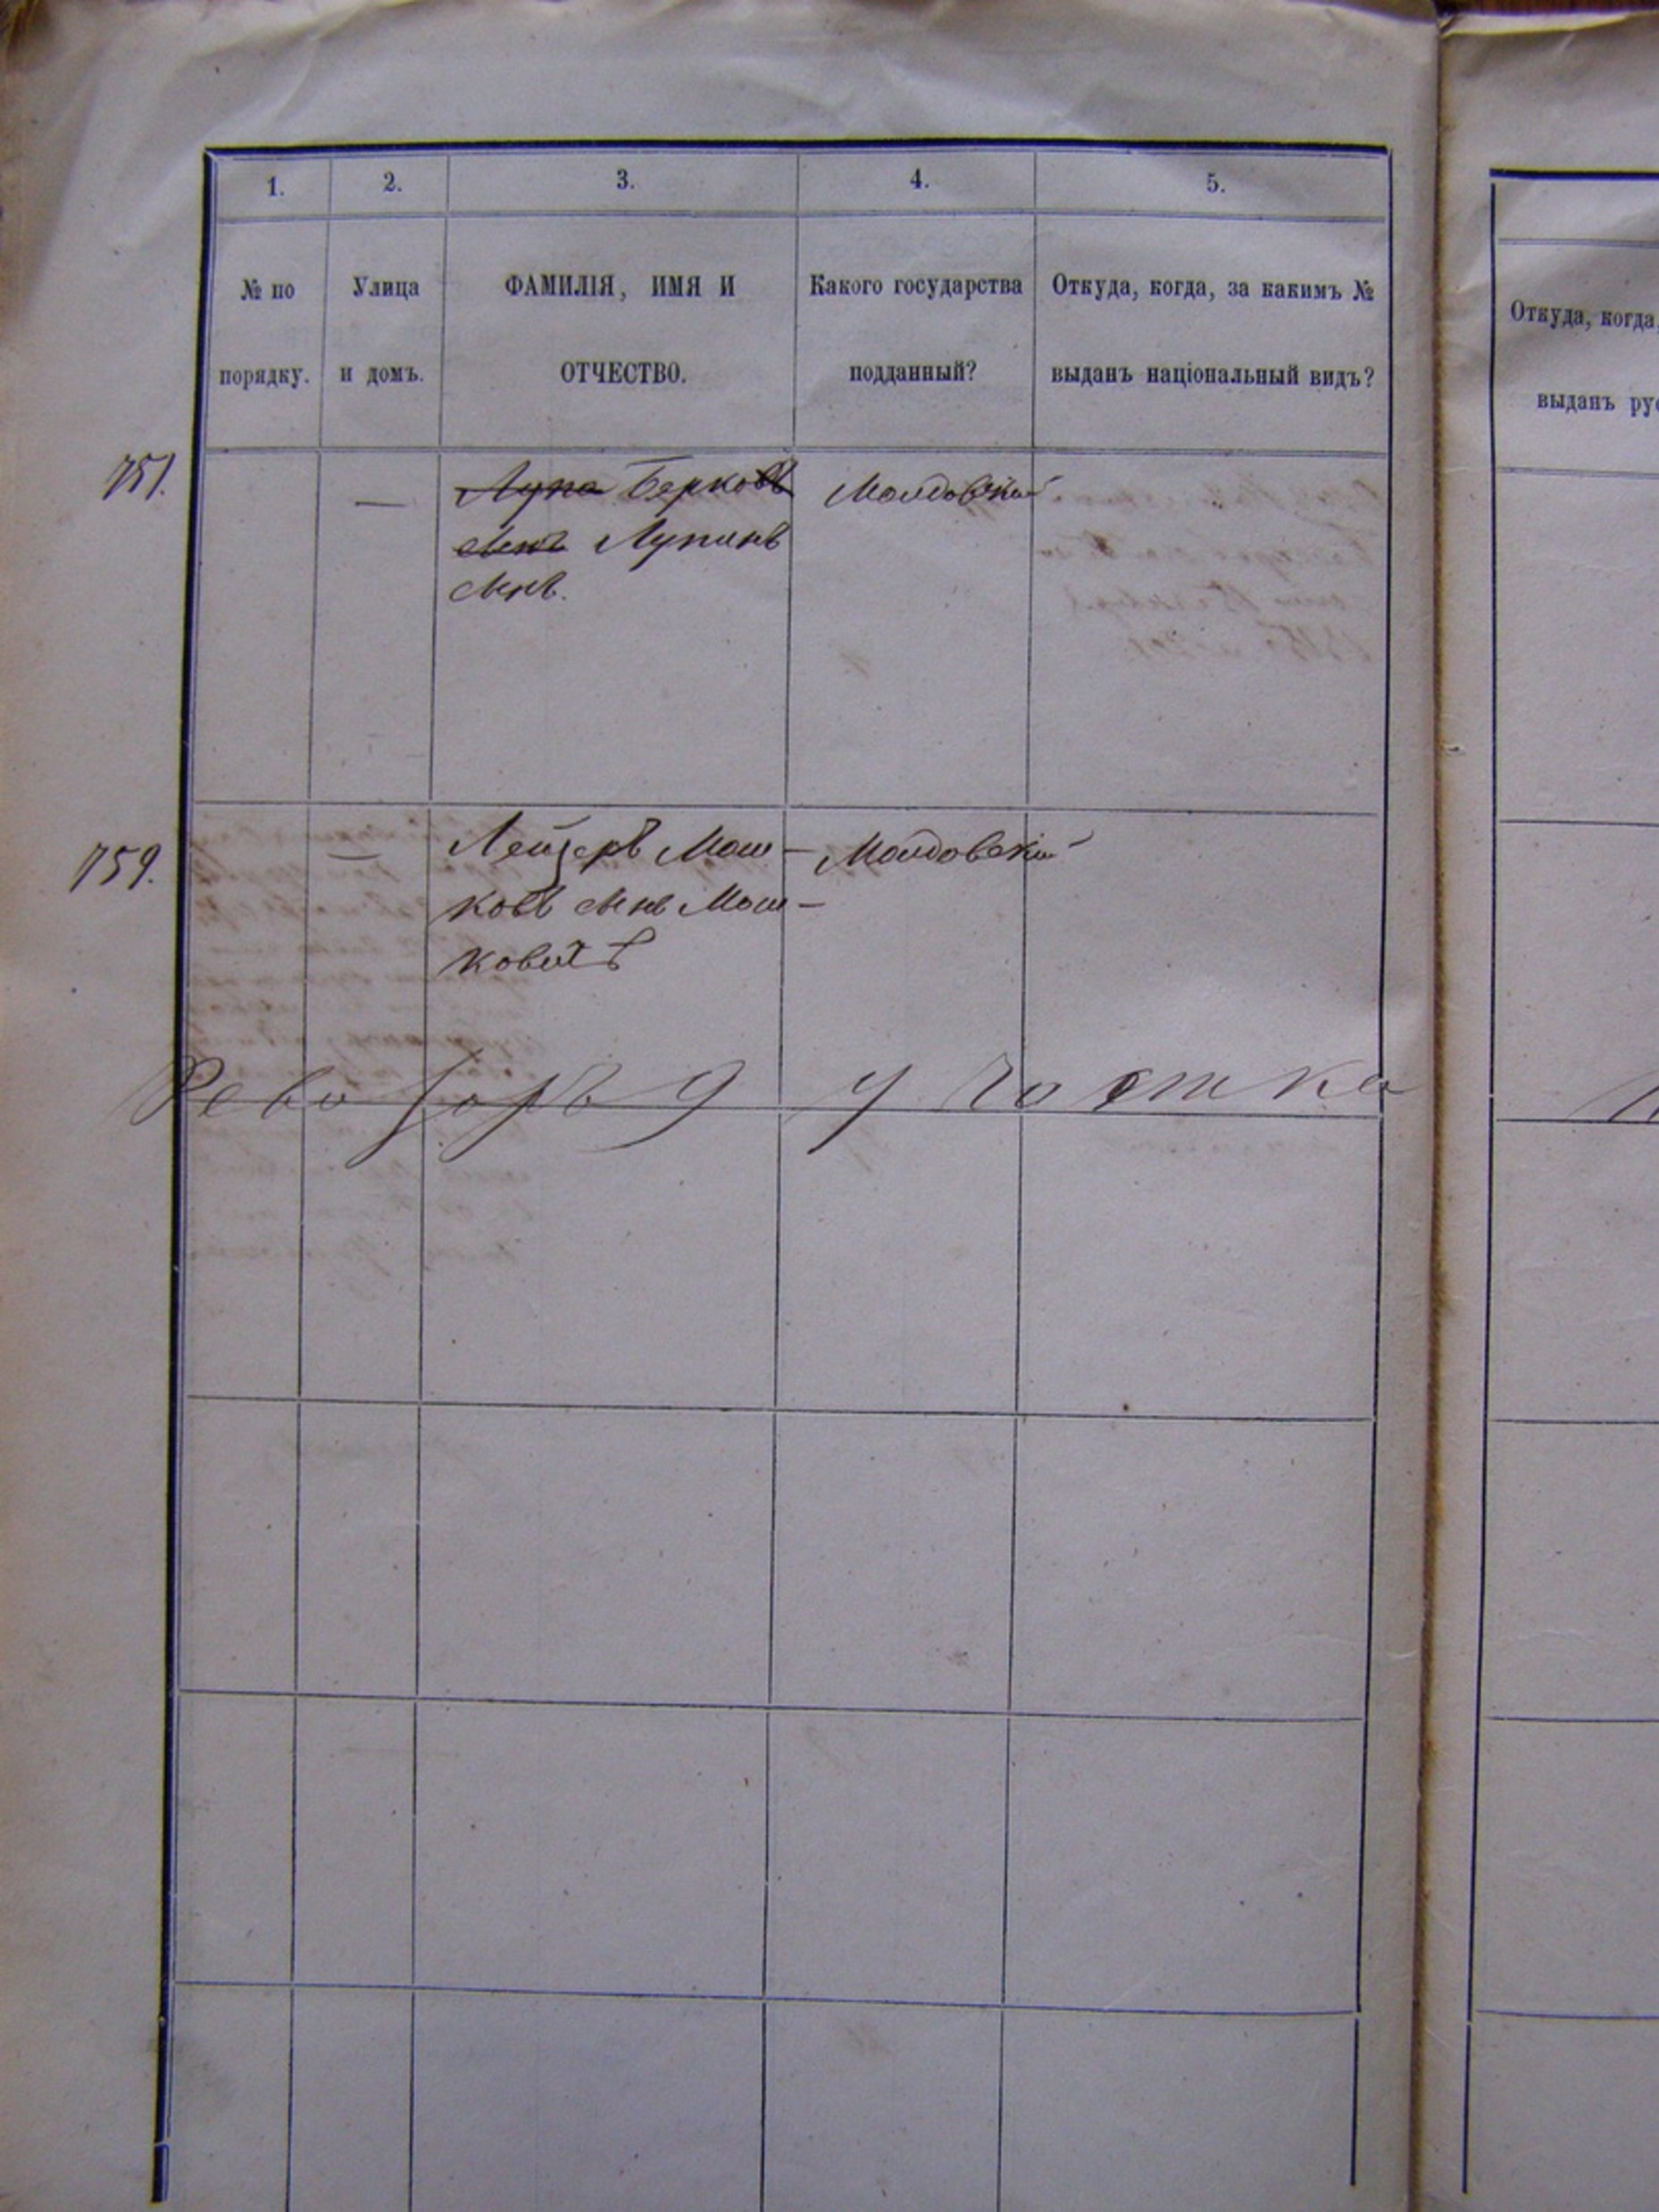 1. 2. 3. 4. 5.
№ по Улица ФАМИЛІЯ, ИМЯ И Какого государства Откуда, когда, за какимъ №
порядку. и домъ. ОТЧЕСТВО. подданный? выданъ національный видъ?
Откуда, когда,
выданъ рус
751. — Лупа Берковъ Молдовскій
Лупинъ
759. — Лейзеръ Мош- Молдовскій
ковъ Мош-
ковичъ
Ревизоръ 9 участка